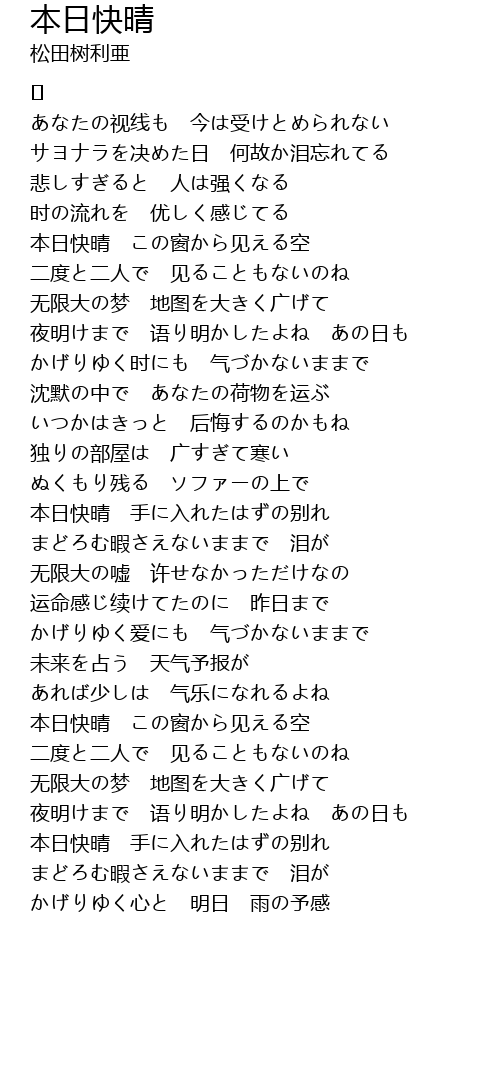 本日快晴
松田树利亜
あなたの视线も　今は受けとめられない
サヨナラを决めた日　何故か泪忘れてる
悲しすぎると　人は强くなる
时の流れを　优しく感じてる
本日快晴　この窗から见える空
二度と二人で　见ることもないのね
无限大の梦　地图を大きく广げて
夜明けまで　语り明かしたよね　あの日も
かげりゆく时にも　气づかないままで
沈默の中で　あなたの荷物を运ぶ
いつかはきっと　后悔するのかもね
独りの部屋は　广すぎて寒い
ぬくもり残る　ソファーの上で
本日快晴　手に入れたはずの别れ
まどろむ暇さえないままで　泪が
无限大の嘘　许せなかっただけなの
运命感じ续けてたのに　昨日まで
かげりゆく爱にも　气づかないままで
未来を占う　天气予报が
あれば少しは　气乐になれるよね
本日快晴　この窗から见える空
二度と二人で　见ることもないのね
无限大の梦　地图を大きく广げて
夜明けまで　语り明かしたよね　あの日も
本日快晴　手に入れたはずの别れ
まどろむ暇さえないままで　泪が
かげりゆく心と　明日　雨の予感